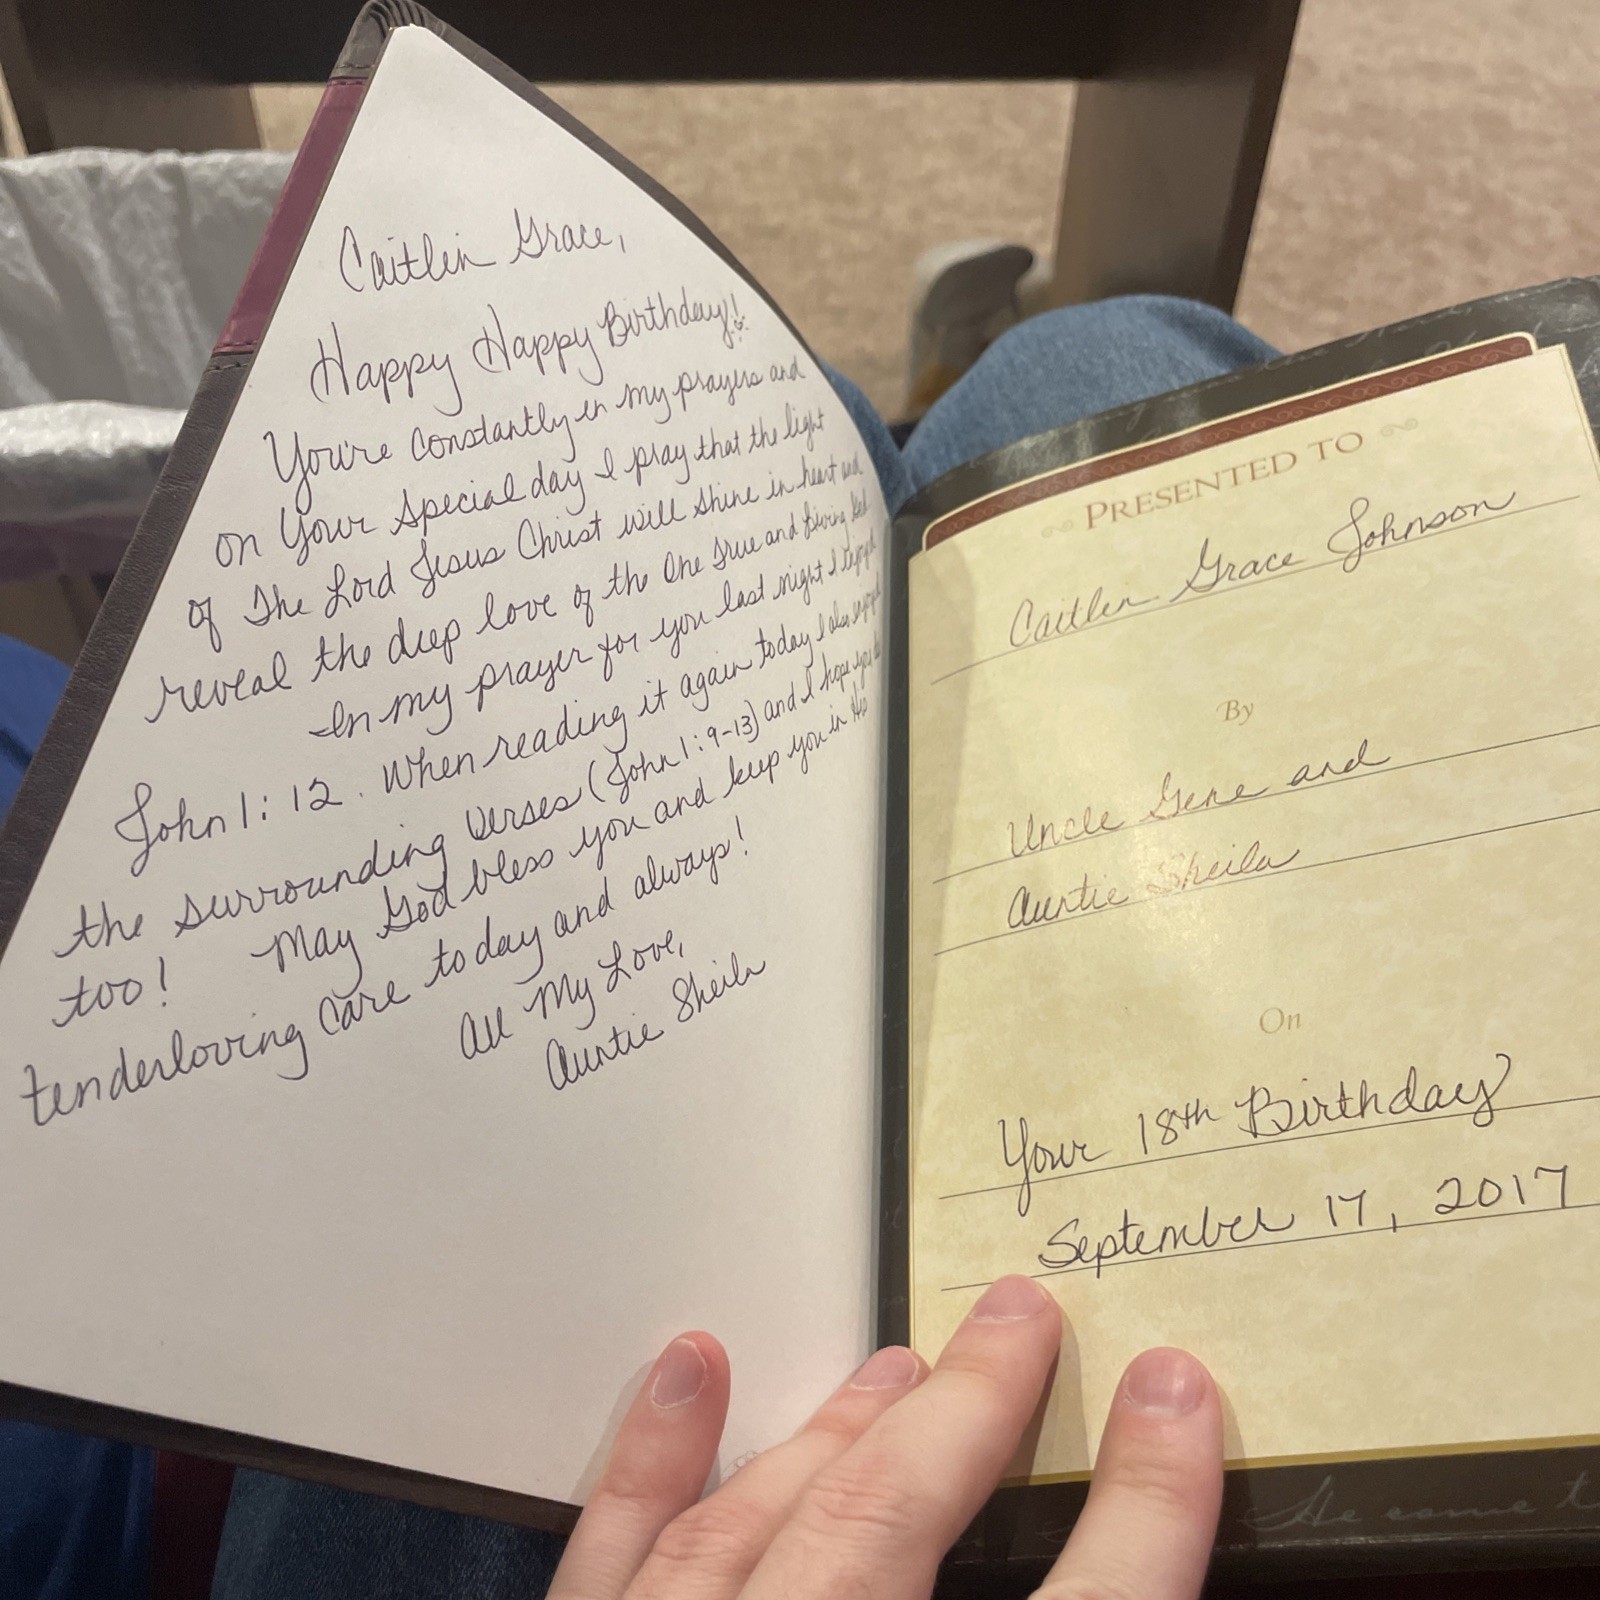 Caitlin Grace,
Happy Happy Birthday!!
You're constantly in my prayers and
on your special day I pray that the light
of The Lord Jesus Christ will shine in heart and
reveal the deep love of the One True and Living God
In my prayer for you last night I enjoyed
John 1:12. When reading it again today I also enjoyed
the surrounding verses (John 1:9-13) and I hope you do
too! May God bless you and keep you in His
tenderloving care today and always!
All My Love,
Auntie Sheila
PRESENTED TO
Caitlin Grace Johnson
By
Uncle Gene and
Auntie Sheila
On
Your 18th Birthday
September 17, 2017
He came t